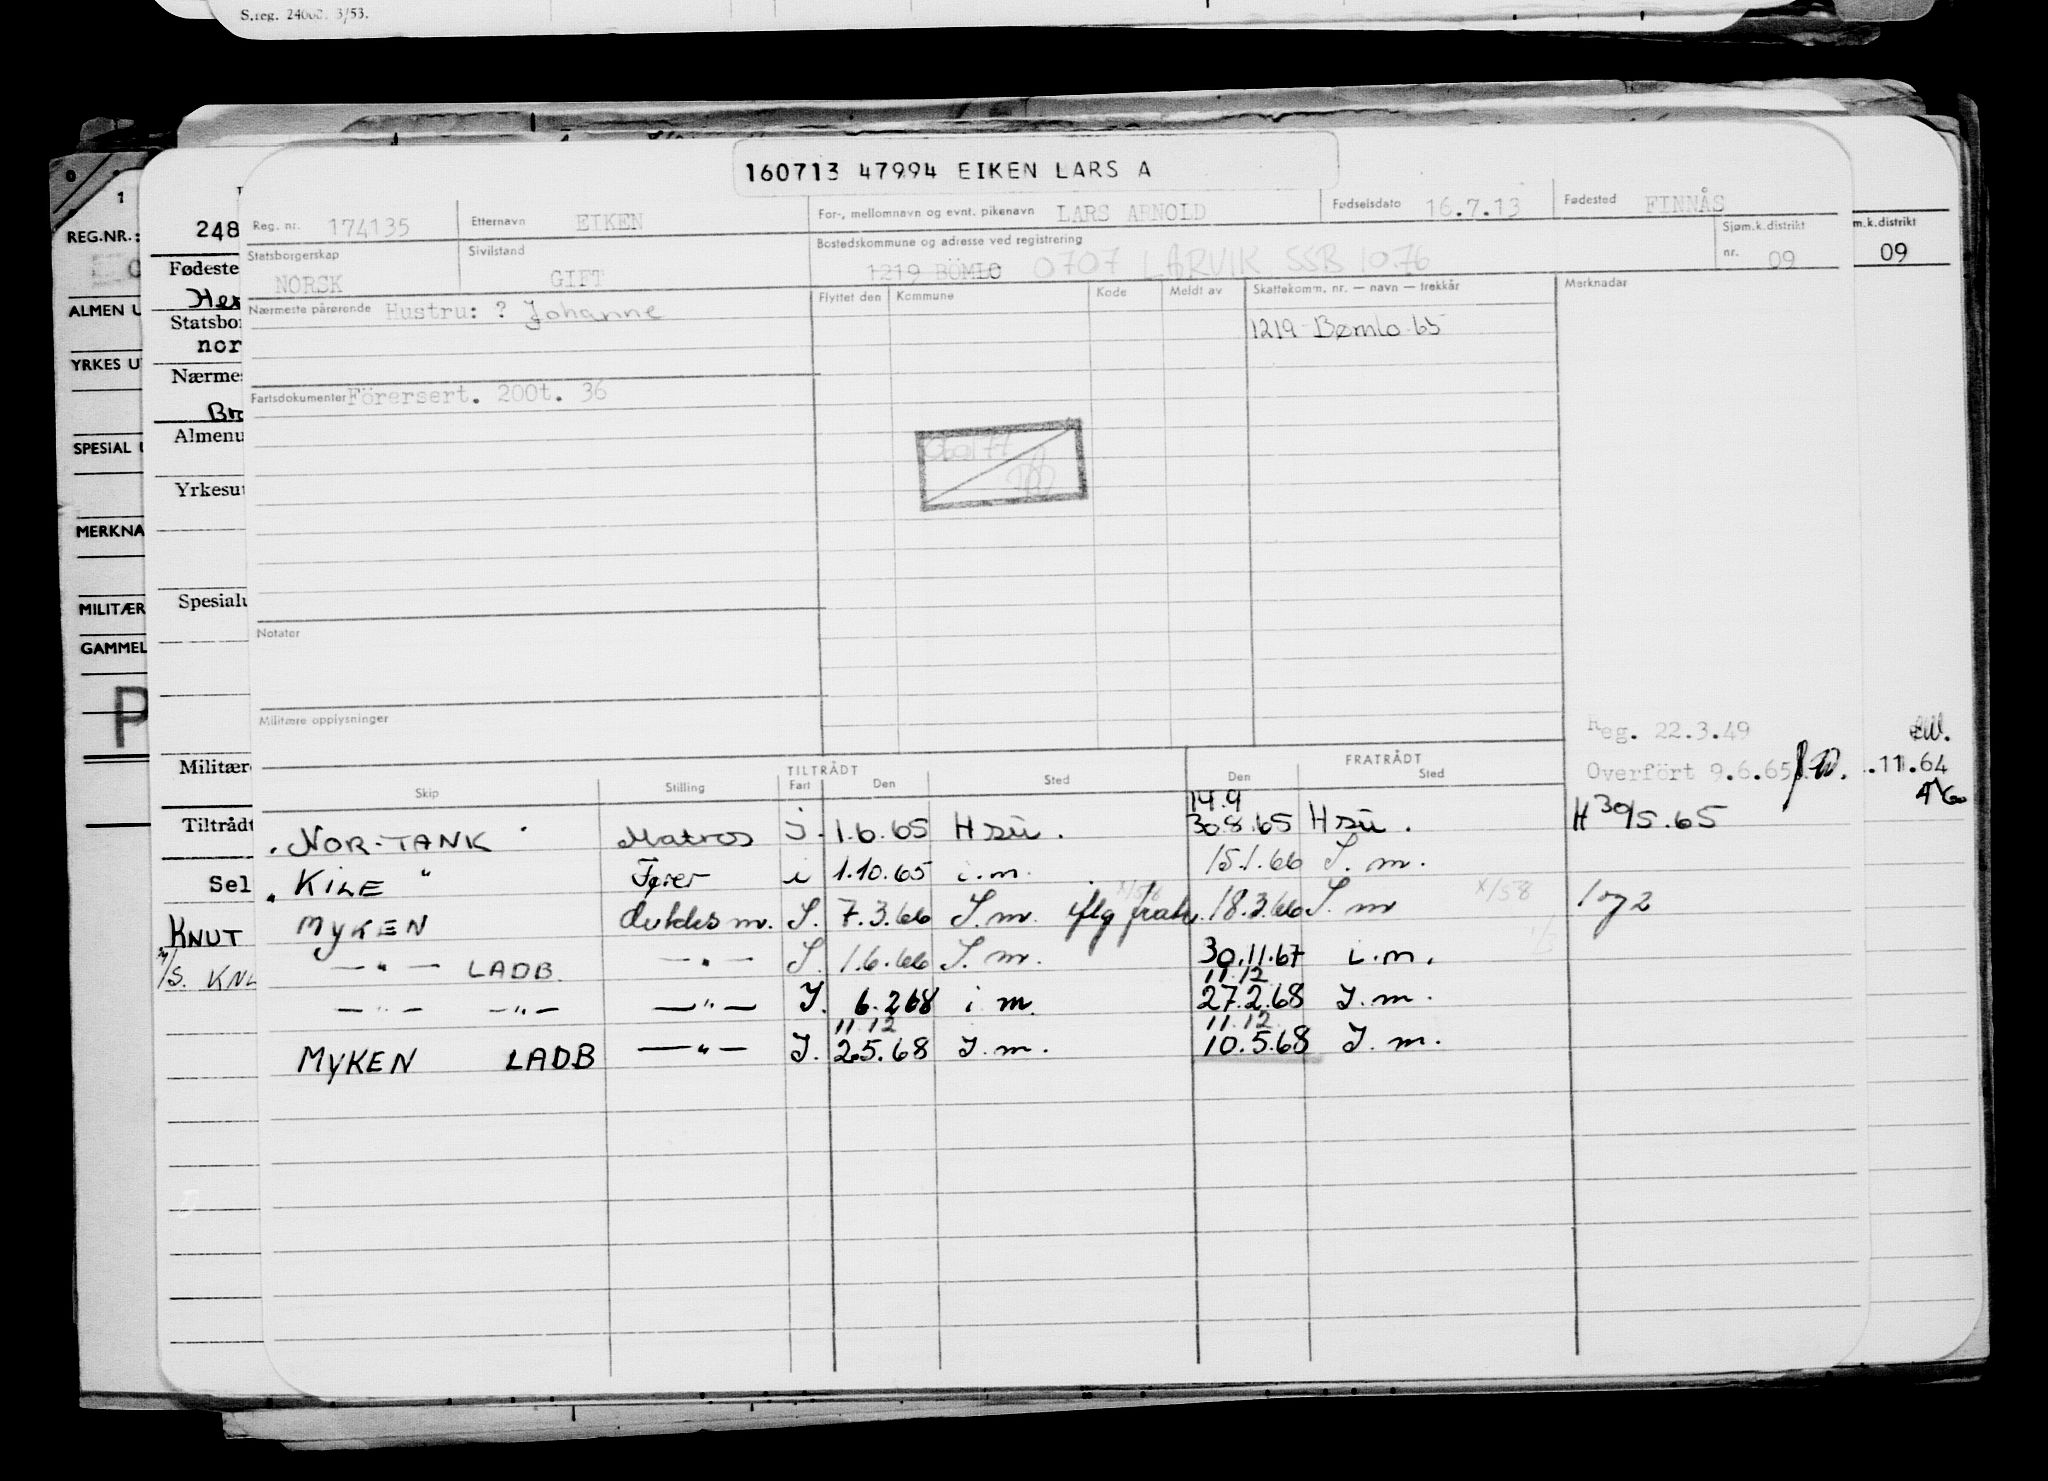 S.reg. 24000. 3/53.
160713 47994 EIKEN LARS A
Reg. nr. 174135 Etternavn EIKEN For-, mellomnavn og evnt. pikenavn LARS ARNOLD Fødselsdato 16.7.13 Fødested FINNÅS
Statsborgerskap NORSK Sivilstand GIFT Bostedskommune og adresse ved registrering 1219 BÖMLO 0707 LARVIK SSB 10.76 Sjøm.k.distrikt nr. 09
m.k.distrikt
09
Nærmeste pårørende Hustru: ? Johanne
Flyttet den Kommune Kode Meldt av Skattekomm. nr. — navn — trekkår Merknadar
1219 Bømlo 65
Fartsdokumenter Förersert. 200t. 36
Notater
Militære opplysninger
Reg. 22.3.49
Overfört 9.6.65
.11.64
TILTRÅDT FRATRÅDT
Skip Stilling Fart Den Sted Den Sted
14.9
NOR-TANK Matros i. 1.6.65 Hsū. 30.8.65 Hsū. H 30/5.65
KILE " Fører i 1.10.65 i.m. 15.1.66 I.m.
MYKEN dukdes m. I. 7.3.66 I.m. iflg fratr. 18.3.66 I.m x/58 1og2
—"— LADB. —"— I. 1.6.66 I.m. 30.11.67 i.m.
11.12
—"— —"— —"— I. 6.2.68 i m. 27.2.68 I.m.
11 12 11.12
MYKEN LADB —"— I. 2.5.68 I.m. 10.5.68 I.m.
REG.NR.:
ALMEN U
YRKES U
SPESIAL
MERKNA
MILITÆR
GAMMEL
P
248
Fødeste
Statsbor
nor
Nærmes
Almenu
Yrkesut
Spesialu
Militære
Tiltrådt
Sel
KNUT
S. KNL